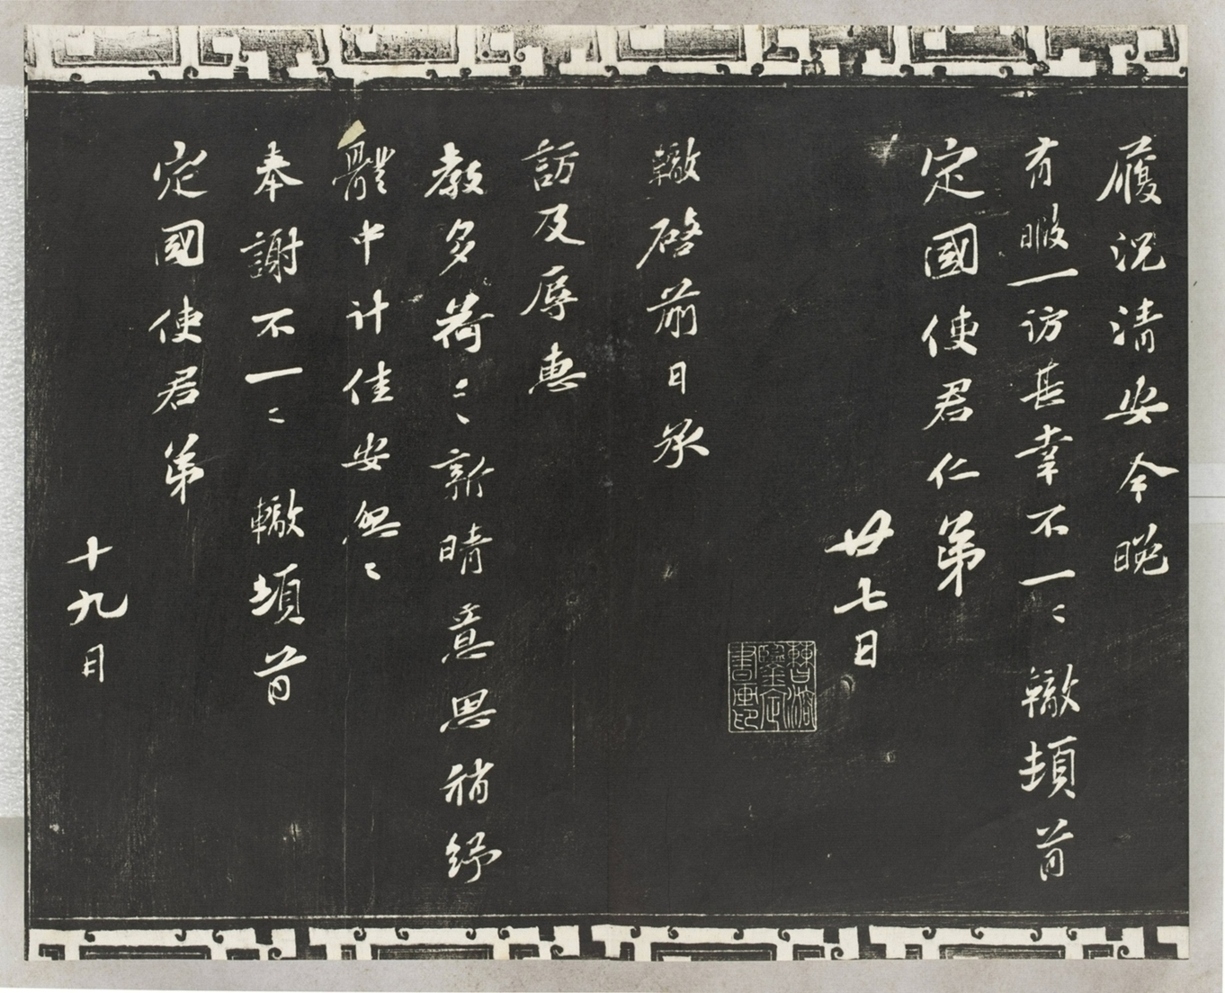 履況清安今晚
有暇一訪甚幸不一〻 轍頓首
定國使君仁弟
廿七日
鑒定書畫印
轍啓前日承
訪及辱惠
教多荷〻新晴意思稍紓
體中計佳安〻
奉謝不一〻 轍頓首
定國使君弟
十九日